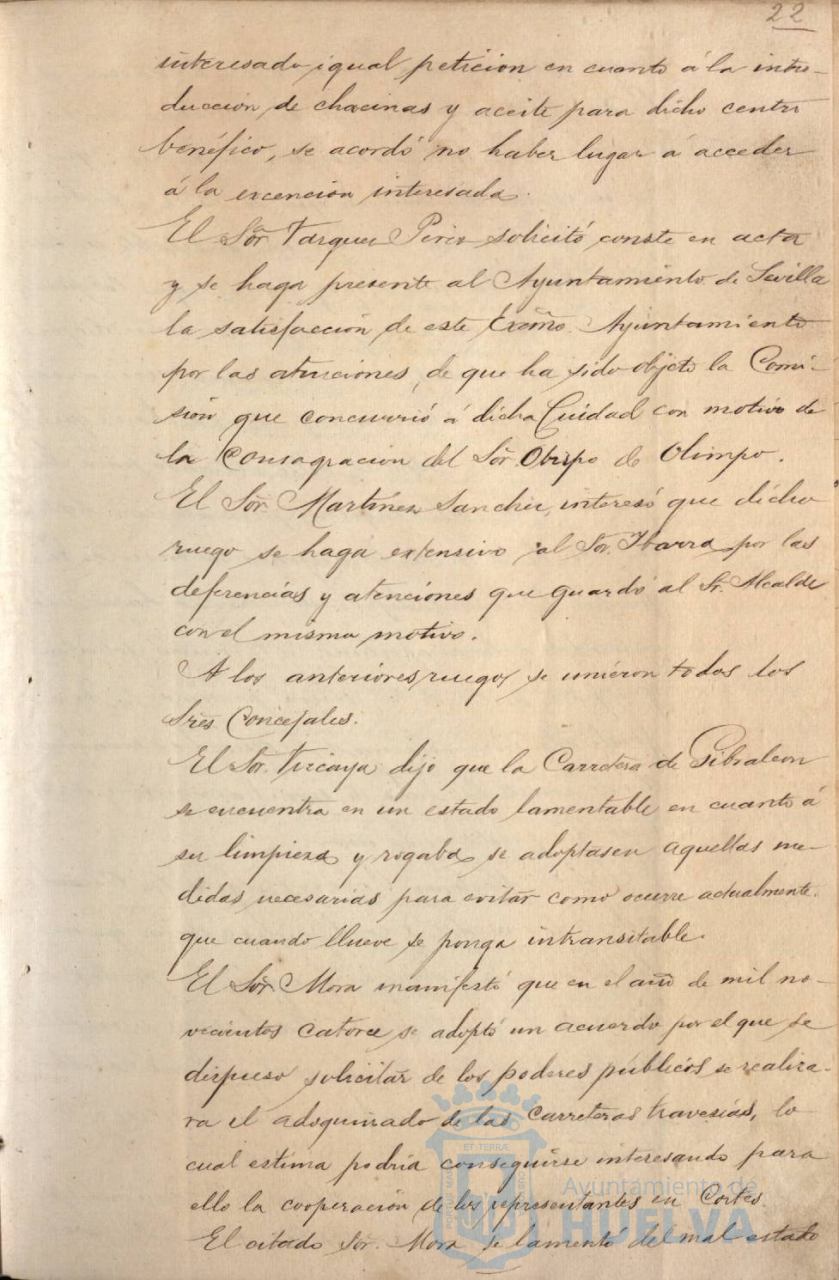 22
interesado igual petición en cuanto á la intro-
ducción de chacinas y aceite para dicho centro
benéfico, se acordó no haber lugar á acceder
á la excención interesada.
El Sõr. Vazquez Perez solicitó conste en acta
y se haga presente al Ayuntamiento de Sevilla
la satisfacción de este Excmõ. Ayuntamiento
por las atenciones, de que ha sido objeto la Comi-
sión que concurrió á dicha Ciudad con motivo de
la Consagración del Sõr. Obispo de Olimpo.
El Sõr. Martínez Sanchez, interesó que dicho
ruego se haga extensivo al Sõr. Ibarra por las
deferencias y atenciones que guardó al Sr. Alcalde
con el mismo motivo.
A los anteriores ruegos se unieron todos los
Sres. Concejales.
El Sr. Vizcaya dijo que la Carretera de Gibraleon
se encuentra en un estado lamentable en cuanto á
su limpieza y rogaba se adoptasen aquellas me-
didas necesarias para evitar como ocurre actualmente.
que cuando llueve se ponga intransitable.
El Sõr. Mora manifestó que en el año de mil no-
vecientos catorce se adoptó un acuerdo por el que se
dispuso solicitar de los poderes públicos se realiza-
ra el adoquinado de las carreteras travesías, lo
cual estima podría conseguirse interesando para
ello la cooperación de los representantes en Cortes.
El citado Sor. Mora se lamentó del mal estado
ET TERRÆ
Ayuntamiento de
HUELVA